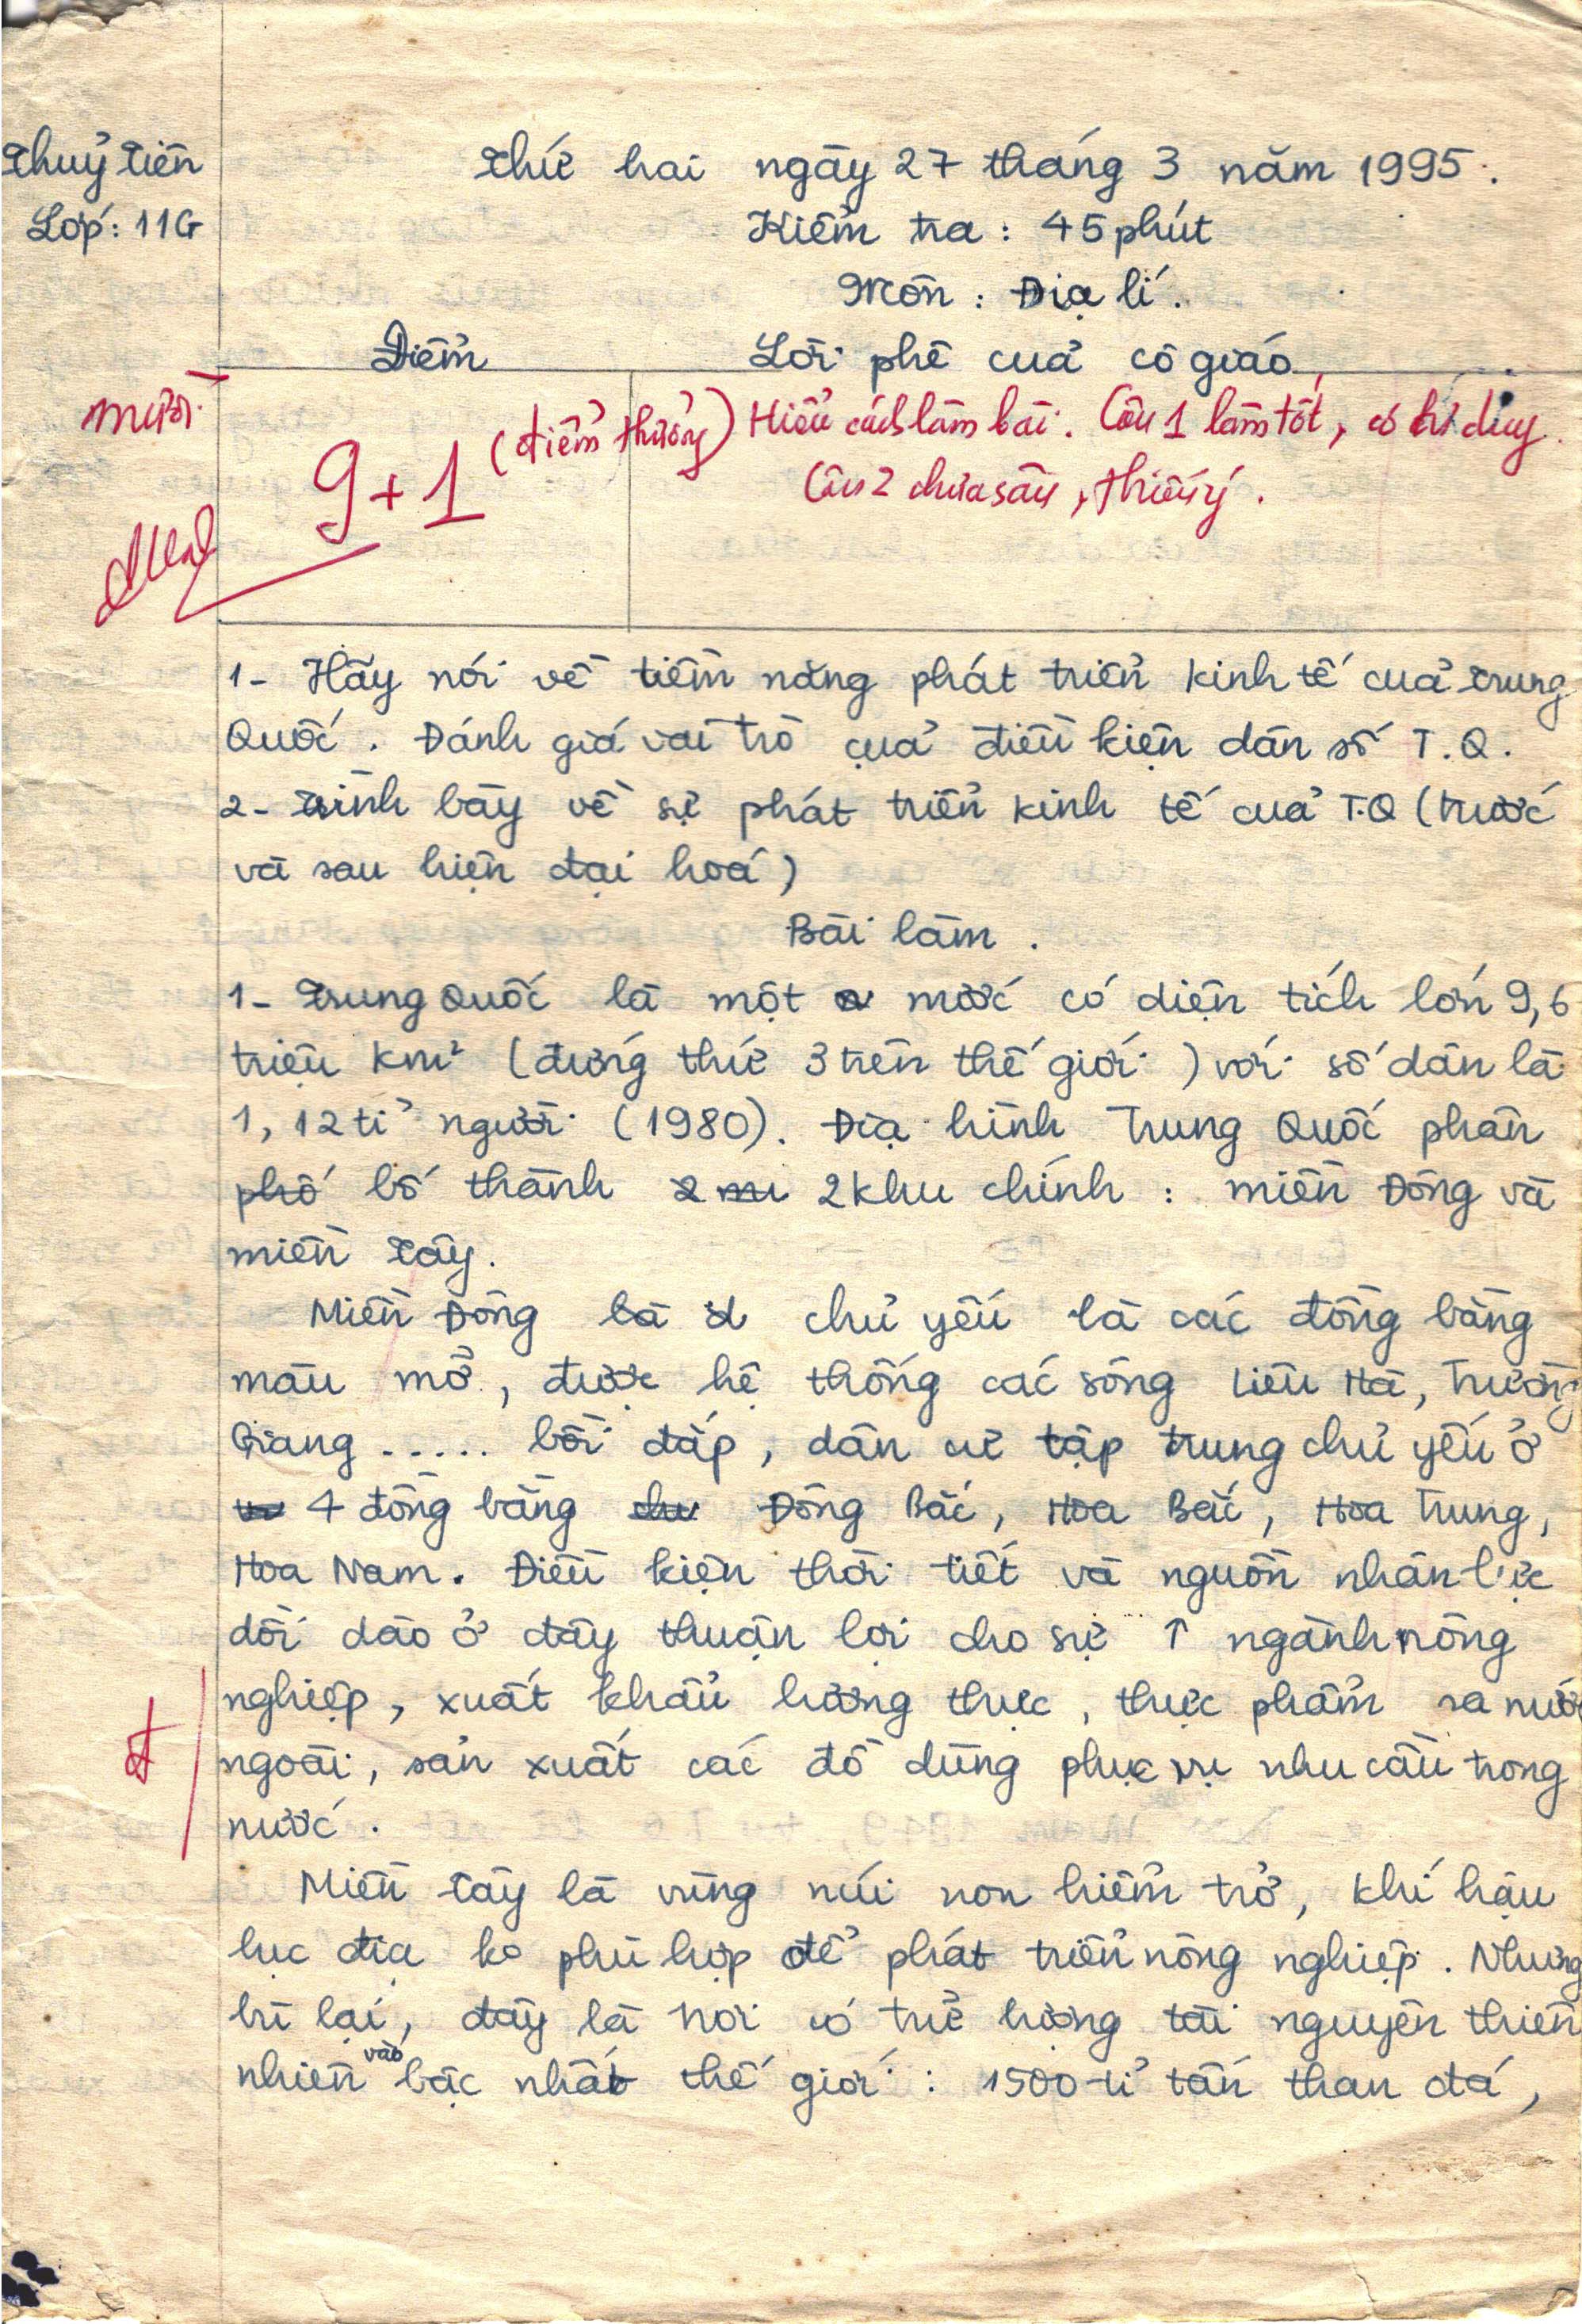 Thuỷ Tiên
Lớp: 11G
Thứ hai ngày 27 tháng 3 năm 1995.
Kiểm tra: 45 phút
Môn: Địa lí.
Điểm
Lời phê của cô giáo
mười
9+1 (điểm thưởng)
Hiểu cách làm bài. Câu 1 làm tốt, có tư duy.
Câu 2 chưa sâu, thiếu ý.
1- Hãy nói về tiềm năng phát triển kinh tế của Trung
Quốc. Đánh giá vai trò của điều kiện dân số T.Q.
2- Trình bày về sự phát triển kinh tế của T.Q (trước
và sau hiện đại hoá)
Bài làm.
1- Trung Quốc là một nước có diện tích lớn 9,6
triệu km² (đứng thứ 3 trên thế giới) với số dân là
1,12 tỉ người (1980). Địa hình Trung Quốc phân
phố bố thành 2 mi 2 khu chính: miền Đông và
miền Tây.
Miền Đông là chủ yếu là các đồng bằng
màu mỡ, được hệ thống các sông Liêu Hà, Trường
Giang ..... bồi đắp, dân cư tập trung chủ yếu ở
4 đồng bằng chu Đông Bắc, Hoa Bắc, Hoa Trung,
Hoa Nam. Điều kiện thời tiết và nguồn nhân lực
dồi dào ở đây thuận lợi cho sự ↑ ngành nông
nghiệp, xuất khẩu lương thực, thực phẩm ra nước
ngoài, sản xuất các đồ dùng phục vụ nhu cầu trong
nước.
đ
Miền Tây là vùng núi non hiểm trở, khí hậu
lục địa ko phù hợp để phát triển nông nghiệp. Nhưng
bù lại, đây là nơi có trữ lượng tài nguyên thiên
nhiên vào bậc nhất thế giới: 1500 tỉ tấn than đá,